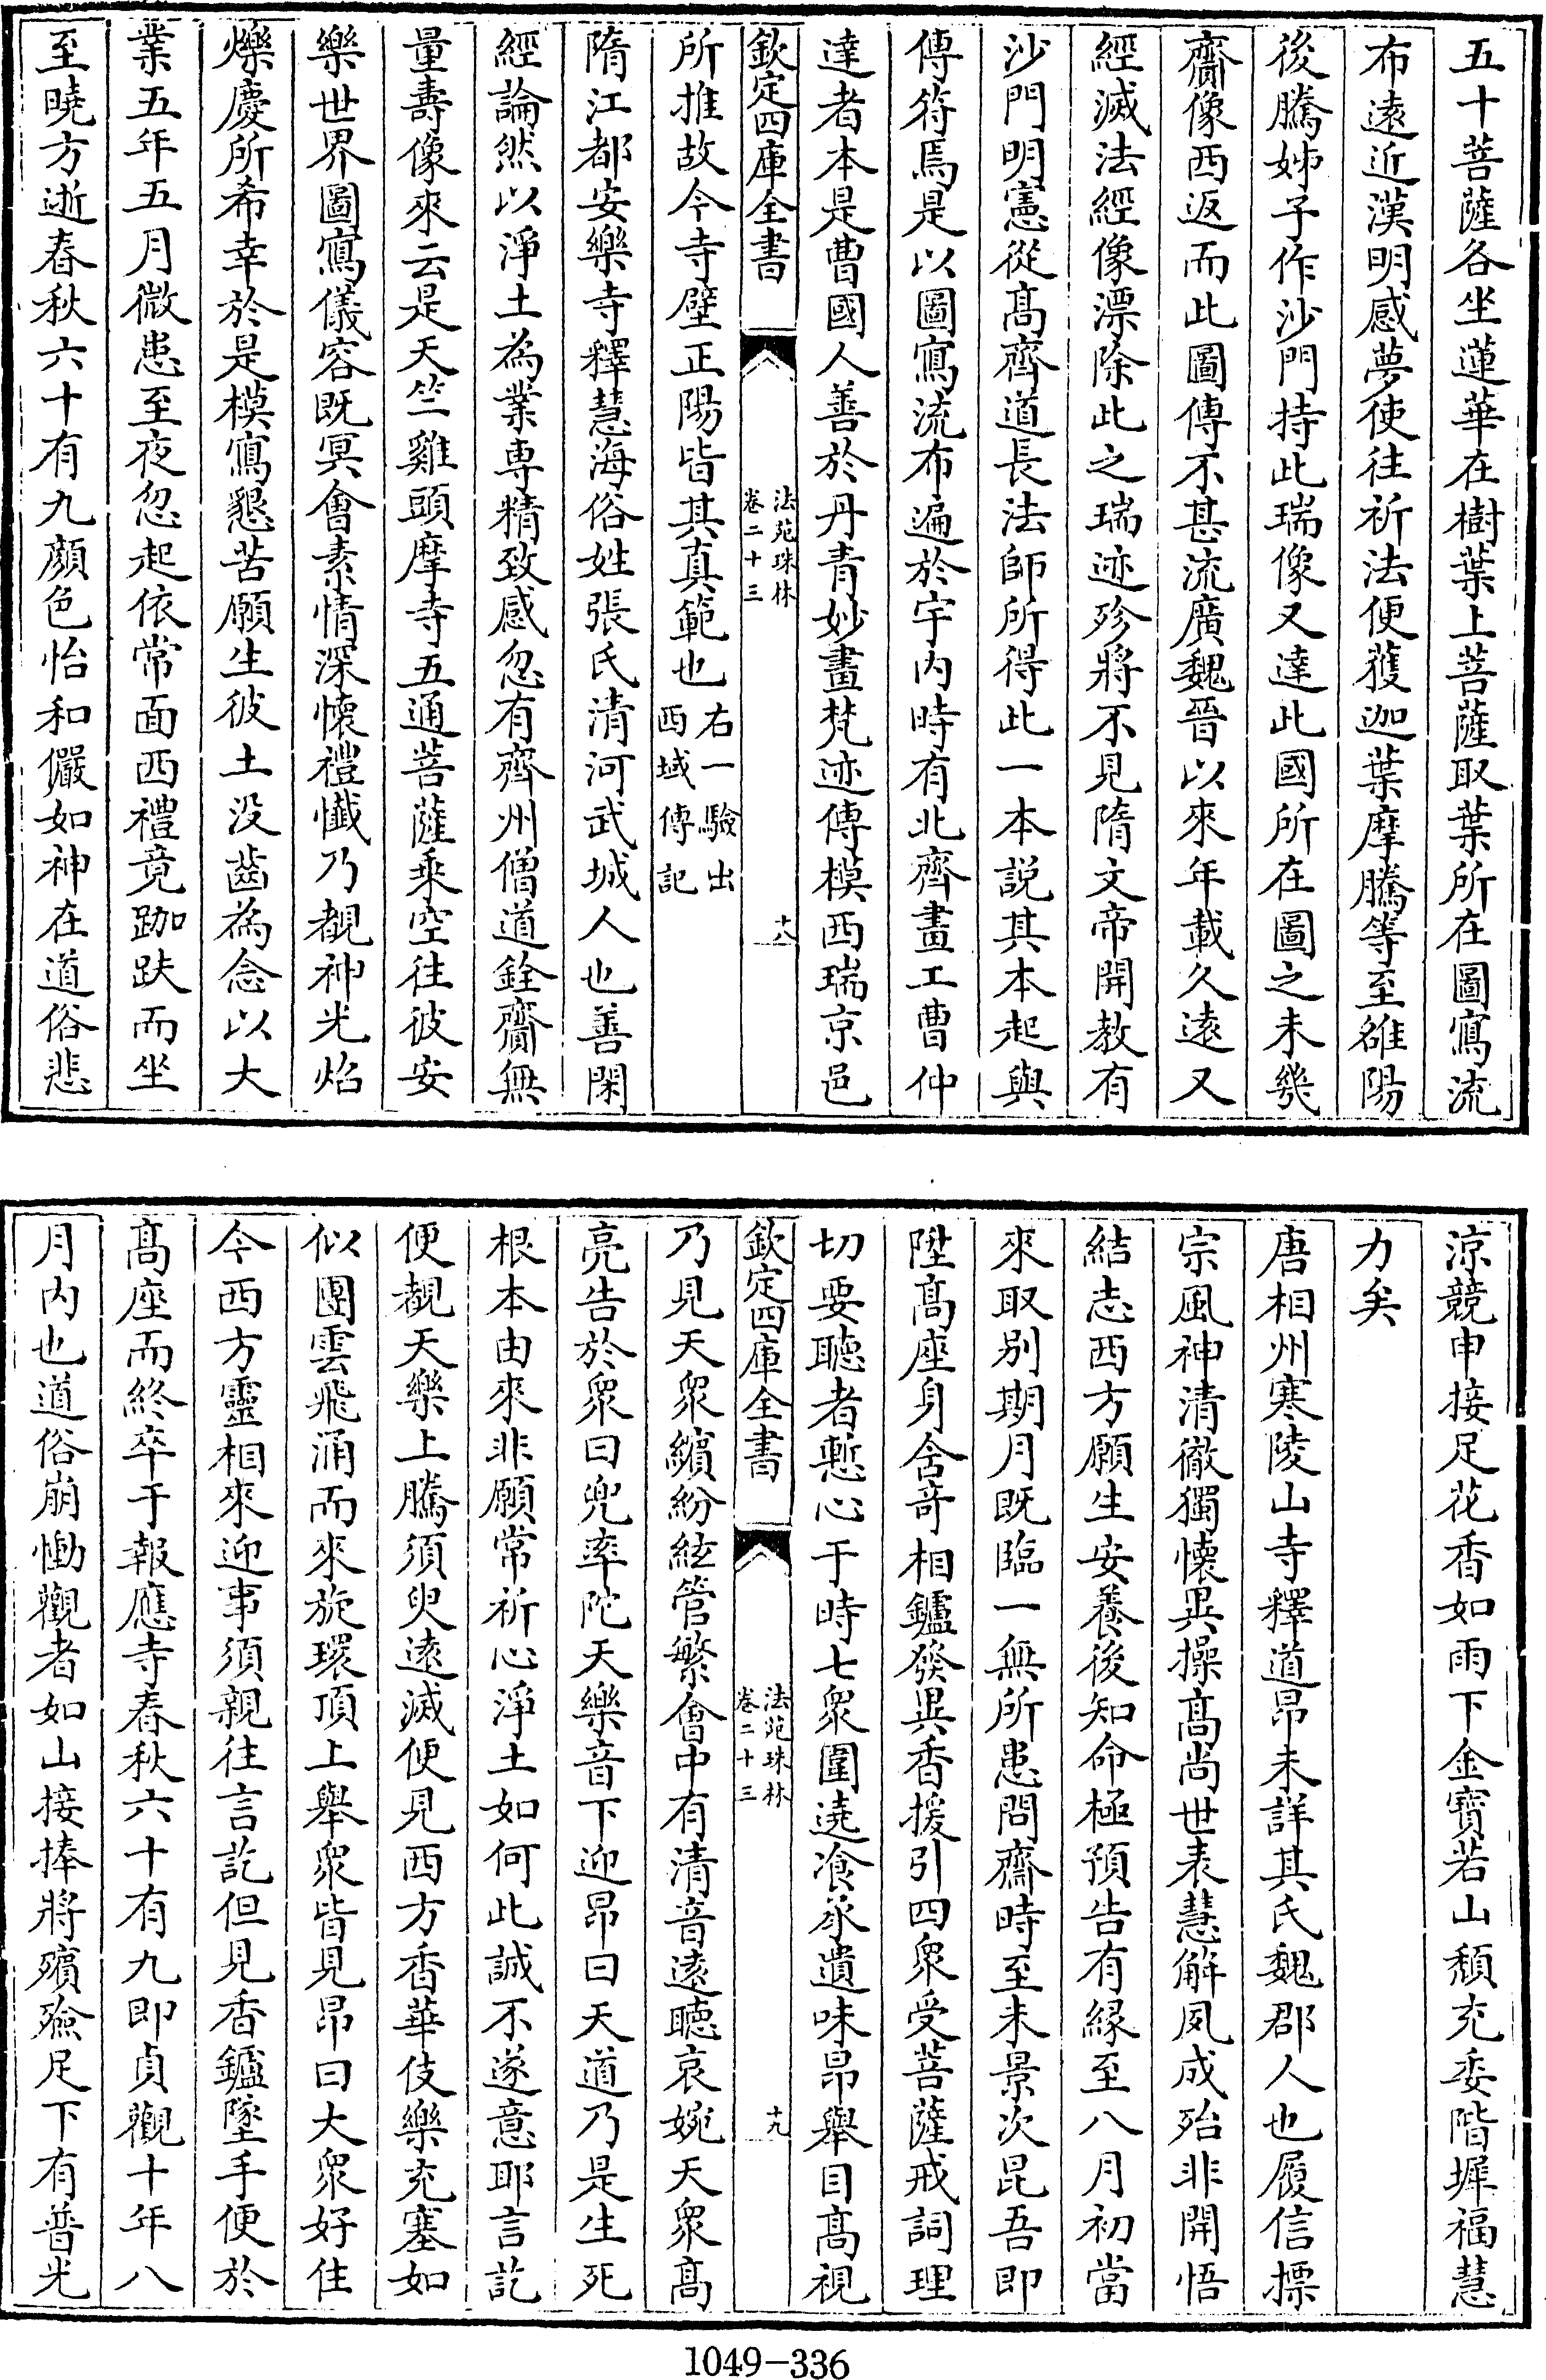 五十菩薩各坐蓮華在樹葉上菩薩取葉所在圖寫流
布遠近漢明感夢使往祈法便獲迦葉摩騰等至雒陽
後騰姊子作沙門持此瑞像又達此國所在圖之未幾
齎像西返而此圖傳不甚流廣魏晉以來年載久遠又
經滅法經像漂除此之瑞迹殄將不見隋文帝開教有
沙門明憲從髙齊道長法師所得此一本説其本起與
傳符焉是以圖寫流布遍於宇内時有北齊畫工曹仲
達者本是曹國人善於丹青妙畫梵迹傳模西瑞京邑
欽定四庫全書
法苑珠林
卷二十三
十八
所推故今寺壁正陽皆其真範也右一驗出
西域傳記
隋江都安樂寺釋慧海俗姓張氏清河武城人也善閑
經論然以淨土為業専精致感忽有齊州僧道銓齎無
量壽像來云是天竺雞頭摩寺五通菩薩乘空往彼安
樂世界圖寫儀容既冥會素情深懷禮懴乃覩神光焰
爍慶所希幸於是模寫懇苦願生彼土没齒為念以大
業五年五月微患至夜忽起依常面西禮竟跏趺而坐
至曉方逝春秋六十有九顔色怡和儼如神在道俗悲
涼競申接足花香如雨下金寶若山頽充委階墀福慧
力矣
唐相州寒陵山寺釋道昂未詳其氏魏郡人也履信標
宗風神清徹獨懷異操髙尚世表慧解夙成殆非開悟
結志西方願生安養後知命極預告有縁至八月初當
來取别期月既臨一無所患問齋時至未景次昆吾即
陞髙座身含竒相鑪發異香援引四衆受菩薩戒詞理
切要聴者慙心于時七衆圍遶飡承遺味昂舉目髙視
欽定四庫全書
法苑珠林
卷二十三
十九
乃見天衆繽紛絃管繁會中有清音遠聴哀婉天衆髙
亮告於衆曰兜率陀天樂音下迎昂曰天道乃是生死
根本由來非願常祈心淨土如何此誠不遂意耶言訖
便覩天樂上騰須臾遠滅便見西方香華伎樂充塞如
似團雲飛涌而來旋環頂上舉衆皆見昂曰大衆好住
今西方靈相來迎事須親往言訖但見香鑪墜手便於
髙座而終卒于報應寺春秋六十有九即貞觀十年八
月内也道俗崩慟觀者如山接捧將殯殮足下有普光
1049-336